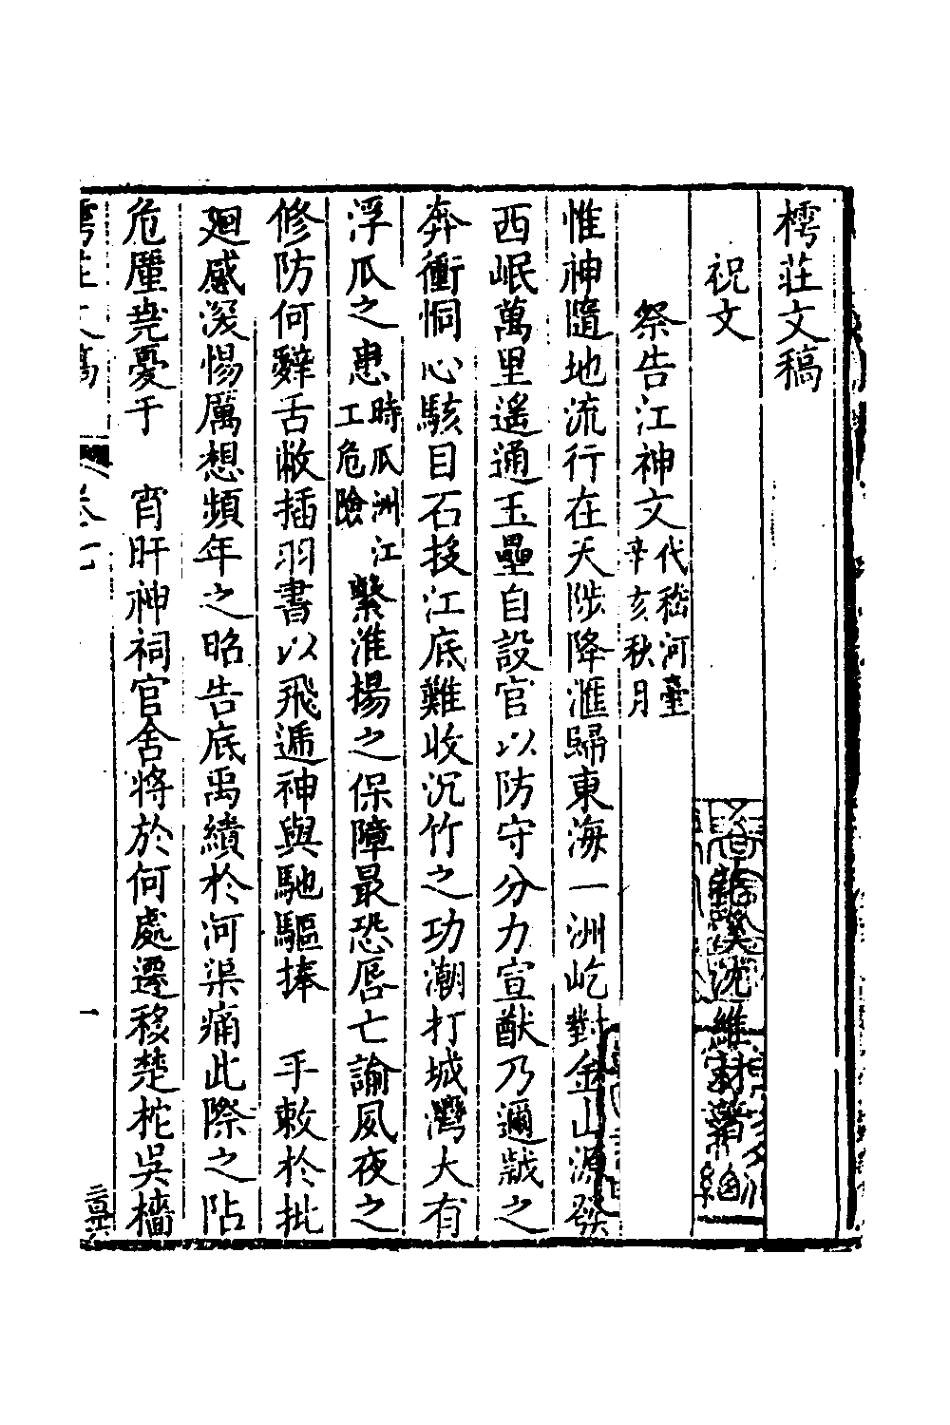 樗莊文稿
祝文
沈維材
祭告江神文代嵇河臺辛亥秋月
惟神隨地流行在天陟降滙歸東海一洲屹對金山源發
西岷萬里遙通玉壘自設官以防守分力宣猷乃邇誠之
奔衝恫心駭目石投江底難收沉竹之功潮打城灣大有
浮瓜之患時瓜洲江工危險繄淮揚之保障最恐唇亡諭夙夜之
修防何辭舌敝插羽書以飛遞神與馳驅捧 手敕於批
廻感深惕厲想頻年之昭告底禹績於河渠痛此際之阽
危廑堯憂于 宵旰神祠官舍將於何處遷移楚柁吳檣
樗莊文稿 卷七 一